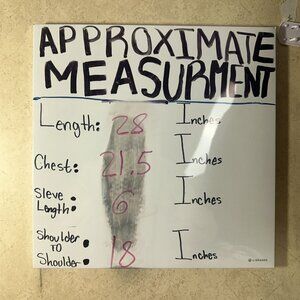 APPROXIMATE
MEASURMENT
Length: 28 Inches
Chest: 21.5 Inches
Sleve
Length: 6 Inches
Shoulder
TO
Shoulder: 18 Inches